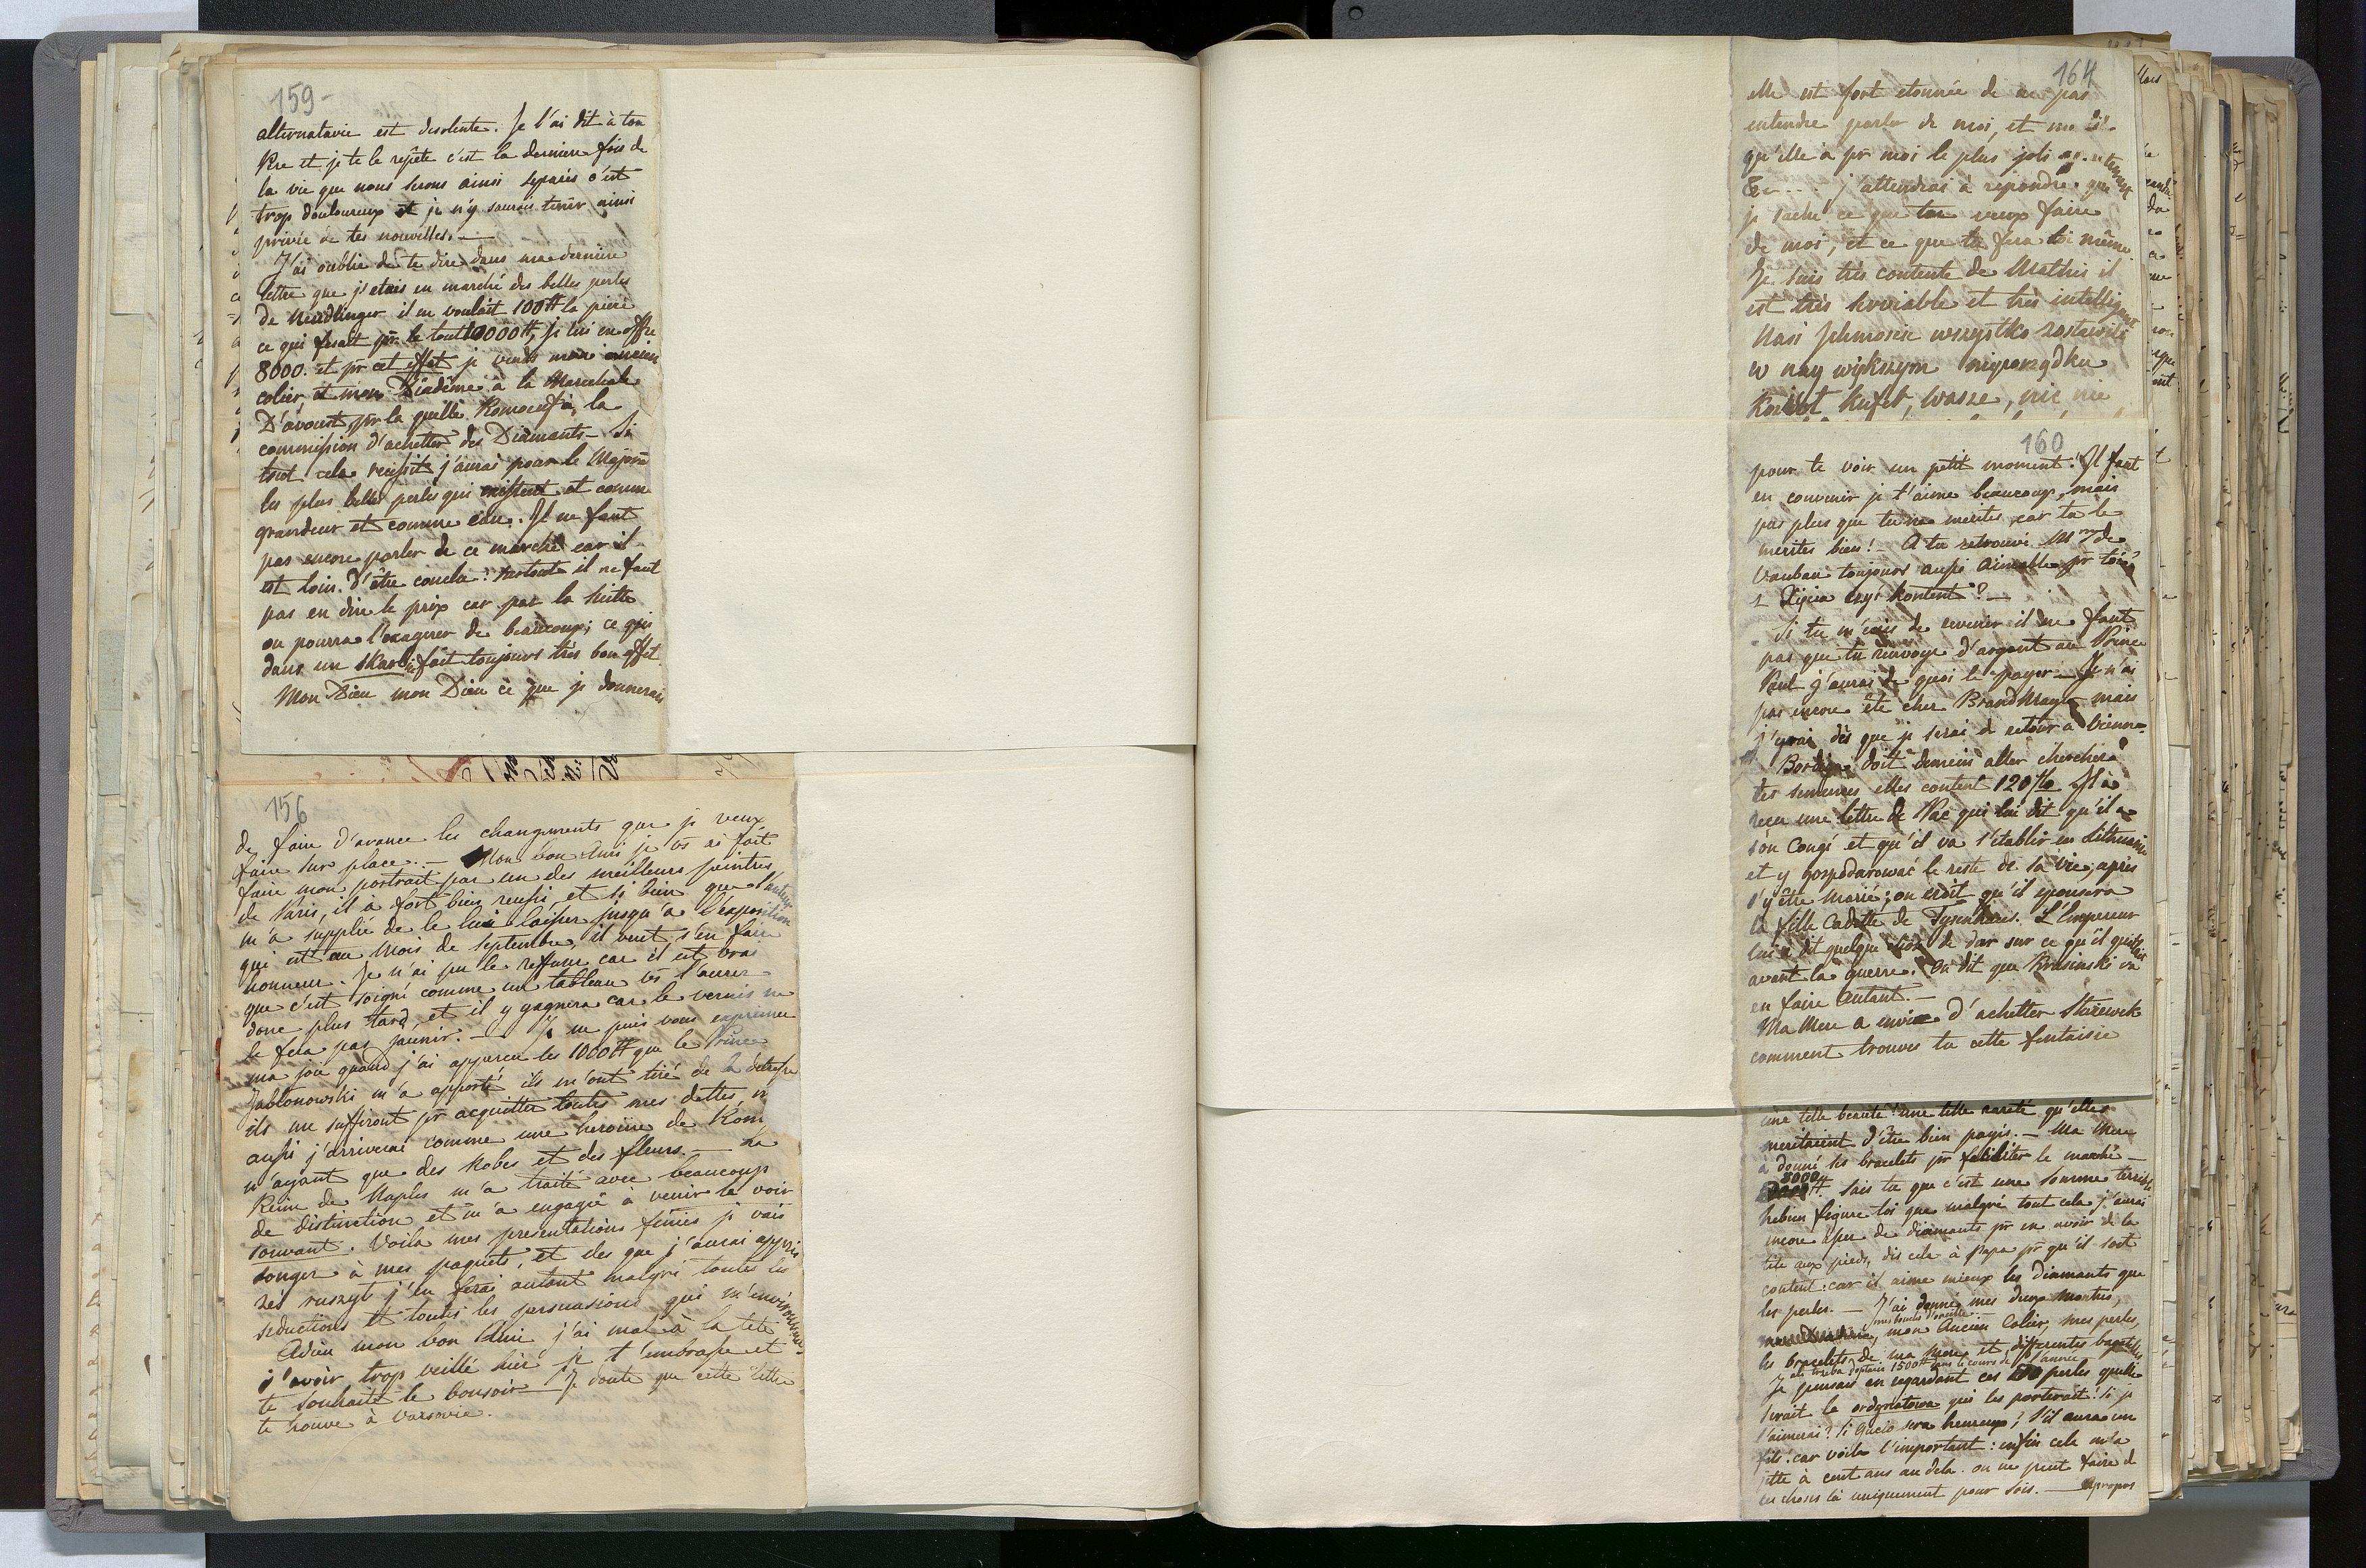 159-
alternatavie est desolente. Je l'ai dit à ton
Pere et je te le repete c'est la derniere fois de
la vie que nous serons ainsi separés c'est
trop douloureux et je n'y saurais tenir ainsi
privée de tes nouvelles. —
J'ai oublié de te dire dans ma derniere
lettre que j'etais en marché des belles perles
de Neudlinger il en voulait 100# la piece
ce qui fesait pr le tout 10000#, je lui en offre
8000. et pr cet effet je vends mon ancien
colier, et mon Diadême à la Marechale
D'avoust, pr la quelle Romoeuf à la
commission d'achetter des Diamants — Si
tout cela reussit j'aurai pour le Majorat
les plus belles perles qui existent et comme
grandeur et comme eau. Il ne faut
pas encore parler de ce marché car il
est loin d'être conclu: surtout il ne faut
pas en dire le prix car par la suitte
on pourra l'exagerer de beaucoup; ce qui
dans un skarb fait toujours tres bon effet.
Mon Dieu mon Dieu ce que je donnerais
156
de faire d'avance les changements que je veux
faire sur place. — Mon bon Ami je vs ai fait
faire mon portrait par un des meilleurs peintres
de Paris, il a fort bien reussi, et si bien que l'auteur
m'a supplié de le lui laisser jusqu'a l'exposition
qui est au mois de septembre, il veut s'en faire
honneur. Je n'ai pu le reffuser car il est vrai
que c'est soigné comme un tableau vs l'aurez
donc plus tard, et il y gagnera car le vernis ne
le fera pas jaunir. — Je ne puis vous exprimer
ma joie quand j'ai apperçu les 1000# que le Prince
Jablonowski m'a apporté ils m'ont tiré de la detresse
ils me suffiront pr acquitter toutes mes dettes,
aussi j'arriverai comme une heroiine de Rom
n'ayant que des Robes et des fleurs. — La
Reine de Naples m'a traité avec beaucoup
de distinction et m'a engagée à venir la voir
souvant. Voila mes presentations finies je vais
songer à mes paquets, et des que j'aurai appris
żeś ruszył j'en ferai autant malgré toutes les
seductions et toutes les persuasions qui m'environnent
Adieu mon bon Ami j'ai mal à la tete
d'avoir trop veillé hier je t'embrasse et
te souhaite le bonsoir Je doute que cette lettre
te trouve à Varsovie.
164
elle est fort etonnée de ne pas
entendre parler de moi, et me dit
qu'elle a pr moi le plus joli
&.... j'attendrai à repondre que
je sache ce que tu veux faire
de moi, et ce que tu fera toi même
Je suis très contente de Mathis il
est très serviable et très intelligent
Nasi Jchmoscie wszystko zostawili
w nay większym nieporządku
Koszt Kufet, wasze, nic nie
160
pour te voir un petit moment! Il faut
en convenir je t'aime beaucoup, mais
pas plus que tu ne merites car tu le
merites bien! — A tu retrouvé Mme de
Vauban toujours aussi aimable pr toi?
z Xięcia czyś kontent? —
Si tu m'envoie de revenir il ne faut
pas que tu renvoye d'argent au Prince
Paul j'aurai de quoi le payer — Je n'ai
pas encore été cher Brandmayer mais
j'yrai dès que je serai de retour a Vienne.
doit demain aller chercher
tes semences elles coutent 120 Il a
reçu une lettre de Pac qui lui dit qu'il a
son Congé et qu'il va s'établir en Lithuanie
et y gospodarować le reste de sa vie, après
s'y être marié; on croit qu'il epousera
la fille cadette de Tysenhaus. L'Empereur
lui a dit quelque chose de dur sur ce qu'il quittait
avant la guerre. On dit que Krasinski va
en faire autant. —
Ma Mere a envie d'achetter Sturewek
comment trouves tu cette fantaisie
une telle beauté! une telle rareté qu'elles
meritaient d'être bien payés. — Ma Mere
à donné ses bracelets pr faciliter le marché —
8000# Sais tu que c'est une somme terrible
hebien figure toi que malgré tout cela j'aurai
encore assez de diamants pr en avoir de la
tête aux pieds, dis cela à Papa pr qu'il soit
content: car il aime mieux les diamants que
les perles. — J'ai donné mes deux Montres,
mes boucles d'oreille
mon Ancien Colier, mes perles,
les bracelets de ma Mere et differentes bagatelles
ale trzeba dopłacić 1500# dans le cours de l'année
Je pensais en regardant ces perles quelle
serait la ordynatowa qui les porterait! Si je
l'aimerai? Si Gucio sera heureux; s'il aura un
fils! car voila l'important: enfin cela m'a
jetté à cent ans au dela. on ne peut faire d
ces choses là uniquement pour sois. — Apropos